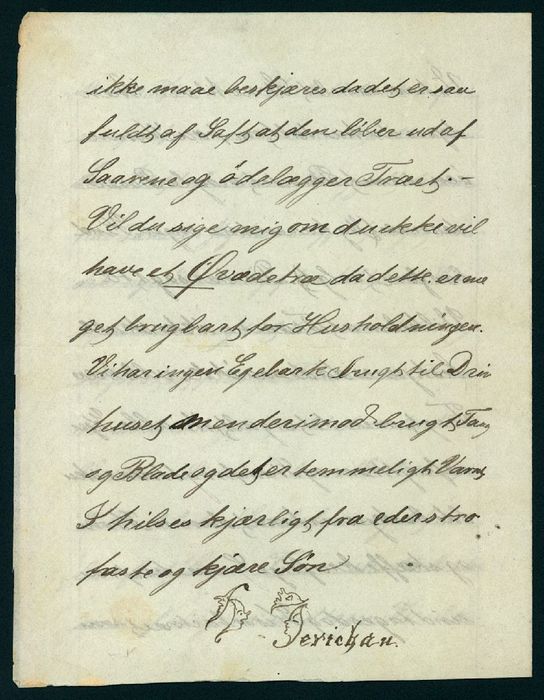 ikke maae beskjæres da det er saa
fuldt af Saft at den löber ud af
Saarene og ödelægger Træet. –
Vil du sige mig om du ikke vil
have et Qvædetræ da dette er me
get brugbart for Husholdningen.
Vi har ingen Egebark brugt til Driv
huset men derimod brugt Tang
og Blade og det er temmeligt Varmt
I hilses kjærligt fra eders tro
faste og kjære Sön
H Jerichau.